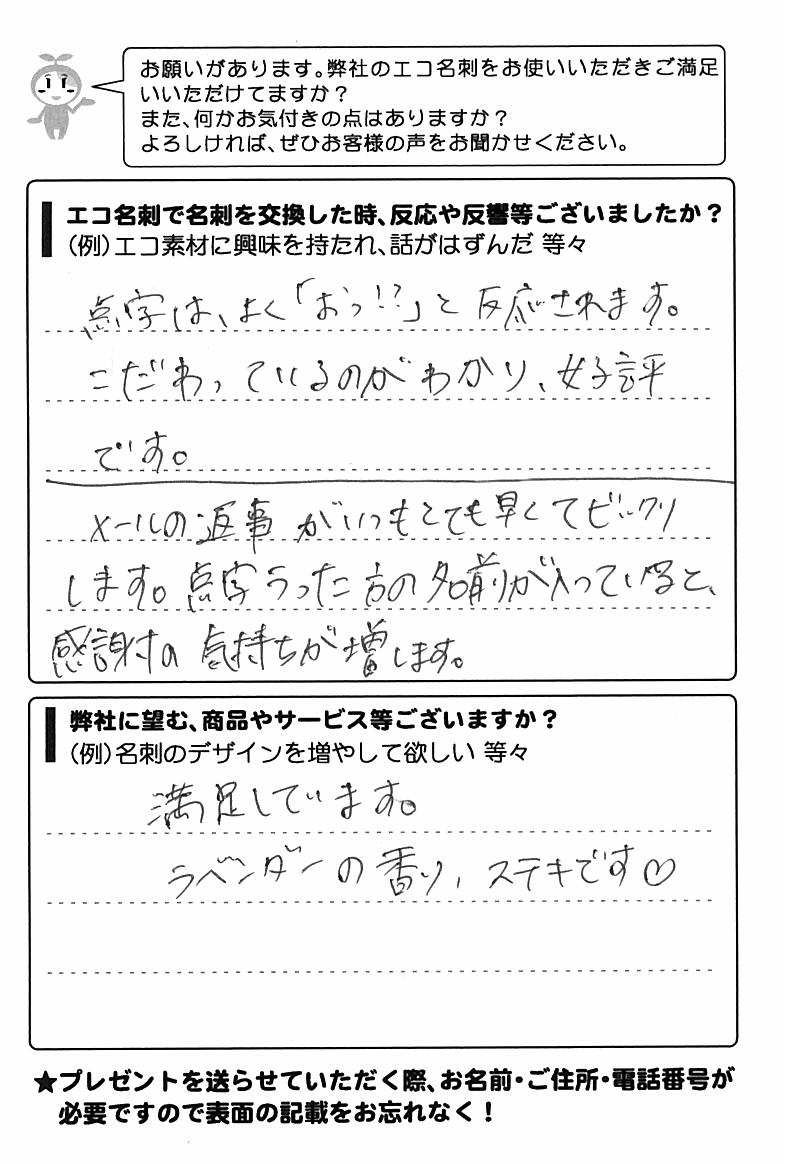 お願いがあります。弊社のエコ名刺をお使いいただきご満足
いいただけてますか？
また、何かお気付きの点はありますか？
よろしければ、ぜひお客様の声をお聞かせください。
エコ名刺で名刺を交換した時、反応や反響等ございましたか？
（例）エコ素材に興味を持たれ、話がはずんだ 等々
点字は、よく「おっ!?」と反応されます。
こだわっているのがわかり、好評
です。
メールの返事がいつもとても早くてビックリ
します。点字うった方の名前が入っていると、
感謝の気持ちが増します。
弊社に望む、商品やサービス等ございますか？
（例）名刺のデザインを増やして欲しい 等々
満足しています。
ラベンダーの香り、ステキです♡
★プレゼントを送らせていただく際、お名前・ご住所・電話番号が
必要ですので表面の記載をお忘れなく！